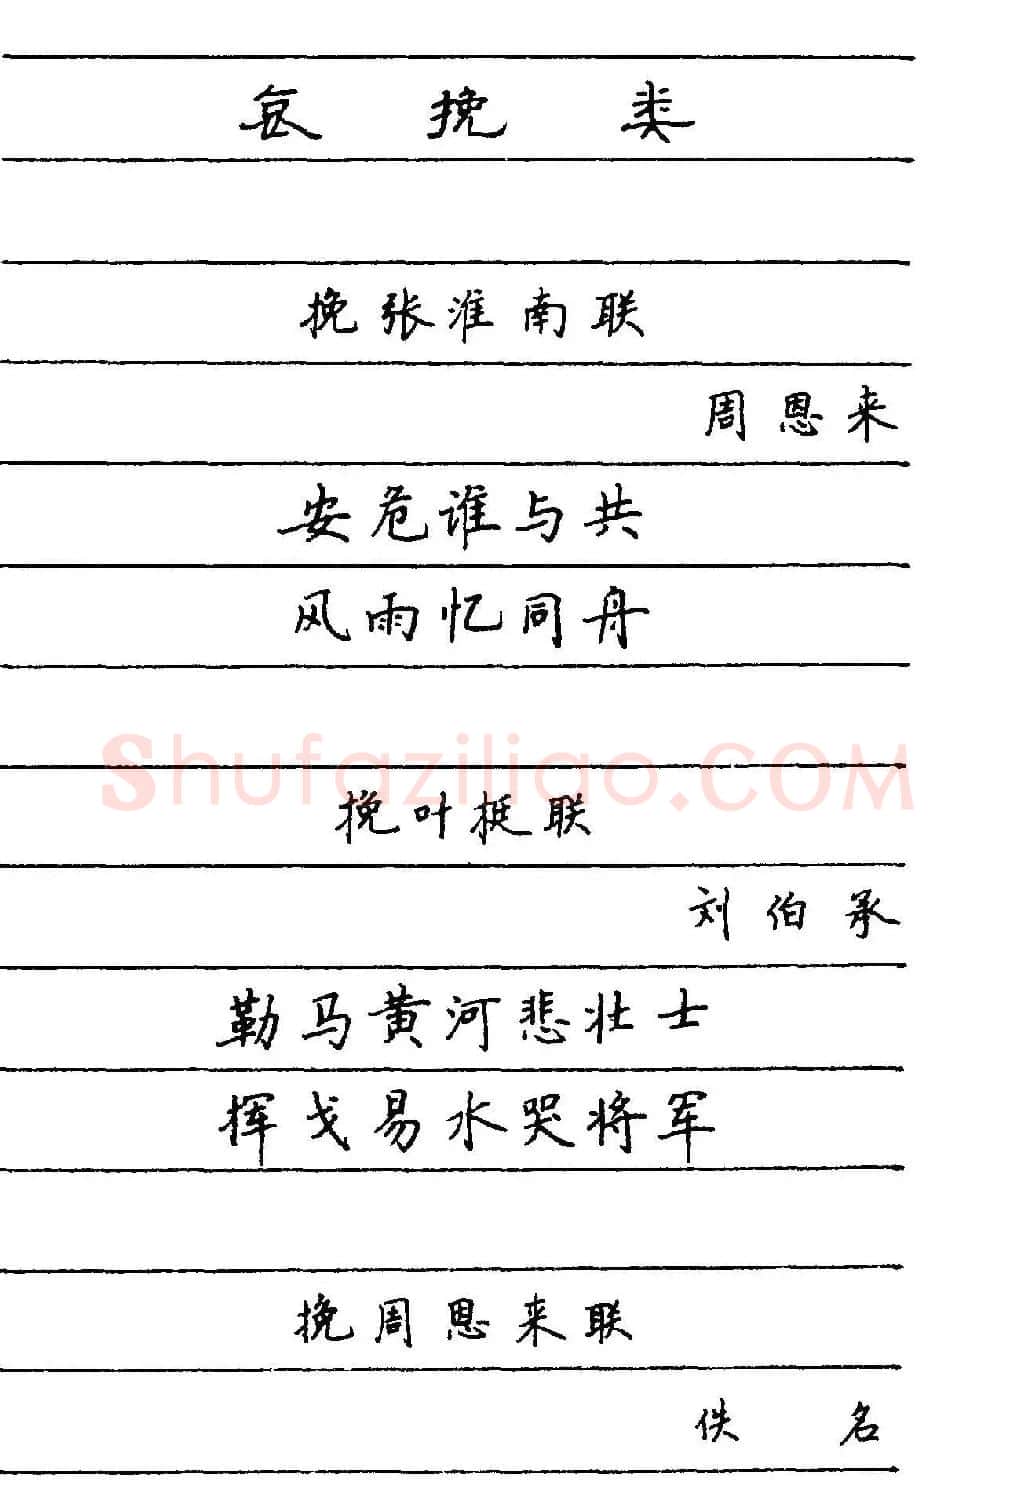 哀挽类
挽张淮南联
周恩来
安危谁与共
风雨忆同舟
Shufaziliao.COM
挽叶挺联
刘伯承
勒马黄河悲壮士
挥戈易水哭将军
挽周恩来联
佚名